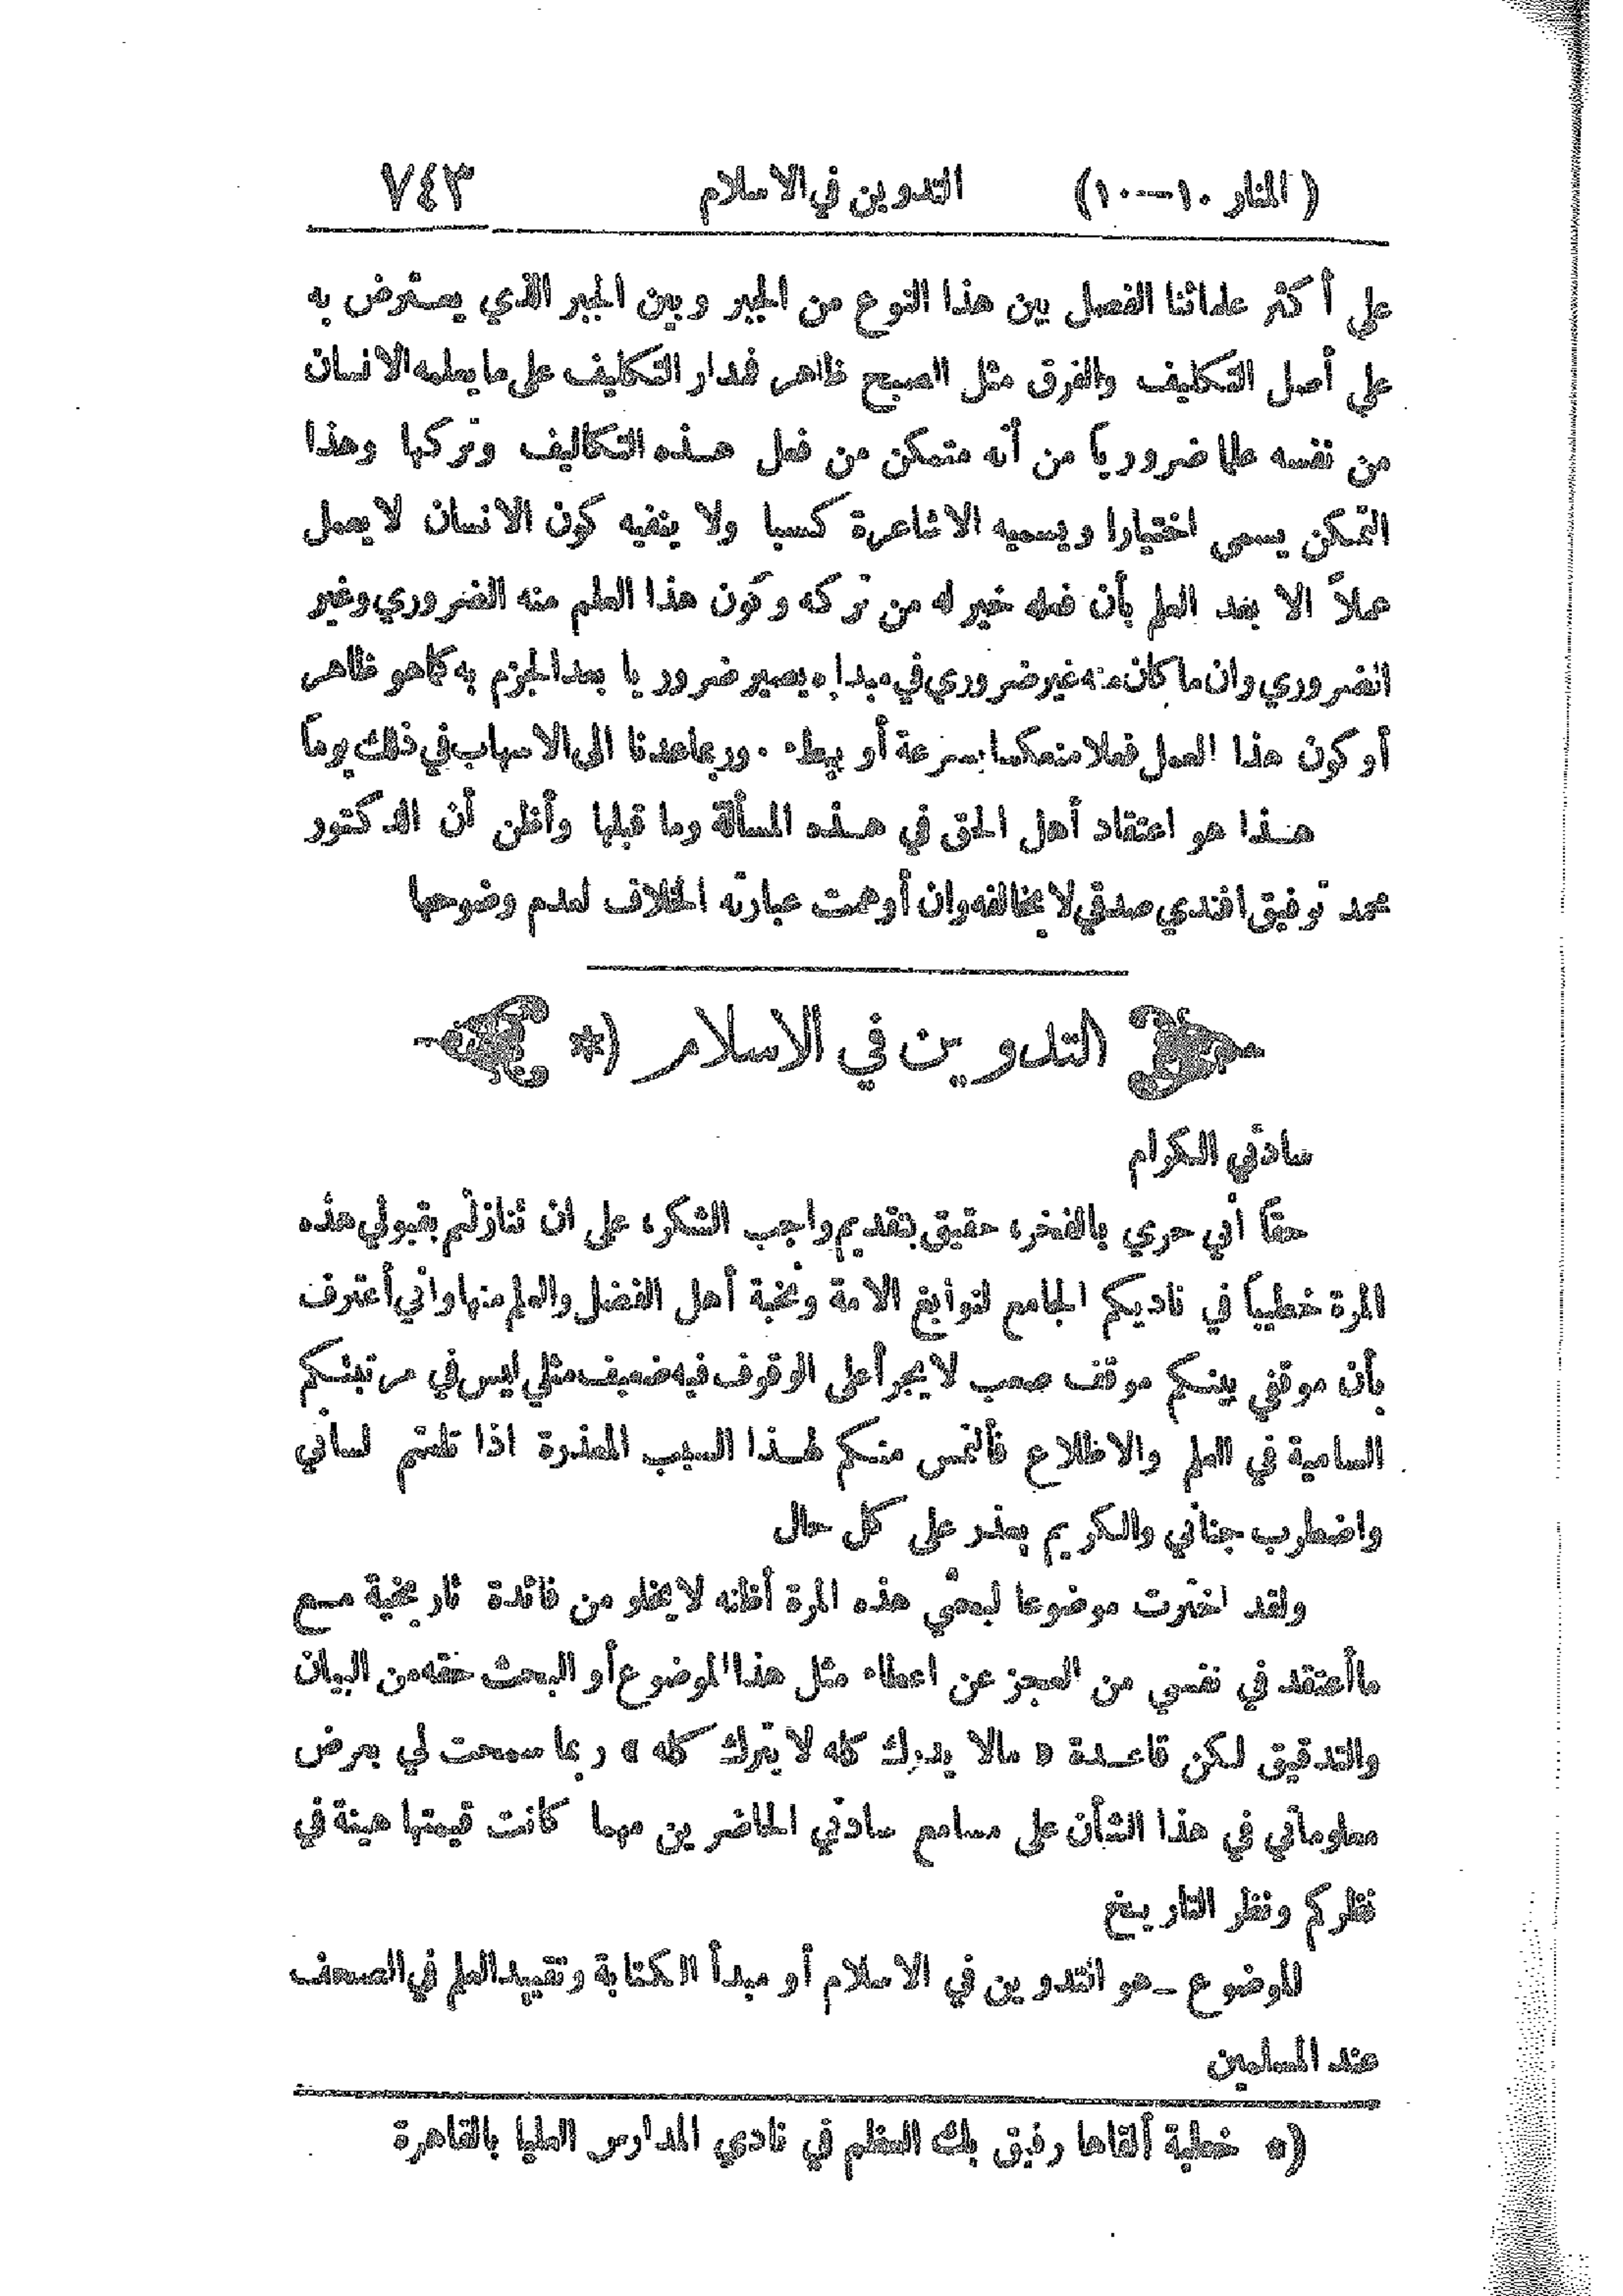 (المنار ١٠—١٠) التدوين في الاسلام ٧٤٣
على أكثر علمائنا الفصل بين هذا النوع من الجبر وبين الجبر الذي يعترض به
على أصل التكليف والفرق مثل الصبح ظاهر فمدار التكليف على ما يعلمه الانسان
من نفسه علما ضرورياً من أنه متمكن من فعل هذه التكاليف وتركها وهذا
التمكن يسمى اختيارا ويسميه الاشاعرة كسبا ولا ينفيه كون الانسان لا يعمل
عملاً الا بعد العلم بأن فعله خير له من تركه وكون هذا العلم منه الضروري وغير
الضروري وان ما كان منه غير ضروري في مبدإه يصير ضروريا بعد الجزم به كما هو ظاهر
أو كون هذا العمل فعلا منعكسا بسرعة أو ببطء . وربما عدنا الى الاسهاب في ذلك يوماً
هذا هو اعتقاد أهل الحق في هذه المسألة وما قبلها وأظن أن الدكتور
محمد توفيق افندي صدقي لا يخالفه وان أوهمت عبارته الخلاف لعدم وضوحها
التدوين في الاسلام (*
سادتي الكرام
حقاً أني حري بالفخر، حقيق بتقديم واجب الشكر، على ان تنازلتم بقبولي هذه
المرة خطيباً في ناديكم الجامع لنوابغ الامة ونخبة أهل الفضل والعلم منها واني أعترف
بأن موقفي بينكم موقف صعب لا يجرأ على الوقوف فيه ضعيف مثلي ليس في مرتبتكم
السامية في العلم والاطلاع فألتمس منكم لهذا السبب المعذرة اذا تلعثم لساني
واضطرب جناني والكريم يعذر على كل حال
ولقد اخترت موضوعا لبحثي هذه المرة أظنه لا يخلو من فائدة تاريخية مع
ما أعتقد في نفسي من العجز عن اعطاء مثل هذا الموضوع أو البحث حقه من البيان
والتدقيق لكن قاعدة « مالا يدرك كله لا يترك كله » ربما سمحت لي بعرض
معلوماتي في هذا الشأن على مسامع سادتي الحاضرين مهما كانت قيمتها هينة في
نظركم ونظر التاريخ
الموضوع ــ هو التدوين في الاسلام أو مبدأ الكتابة وتقييد العلم في الصحف
عند المسلمين
(* خطبة ألقاها رفيق بك العظم في نادي المدارس العليا بالقاهرة